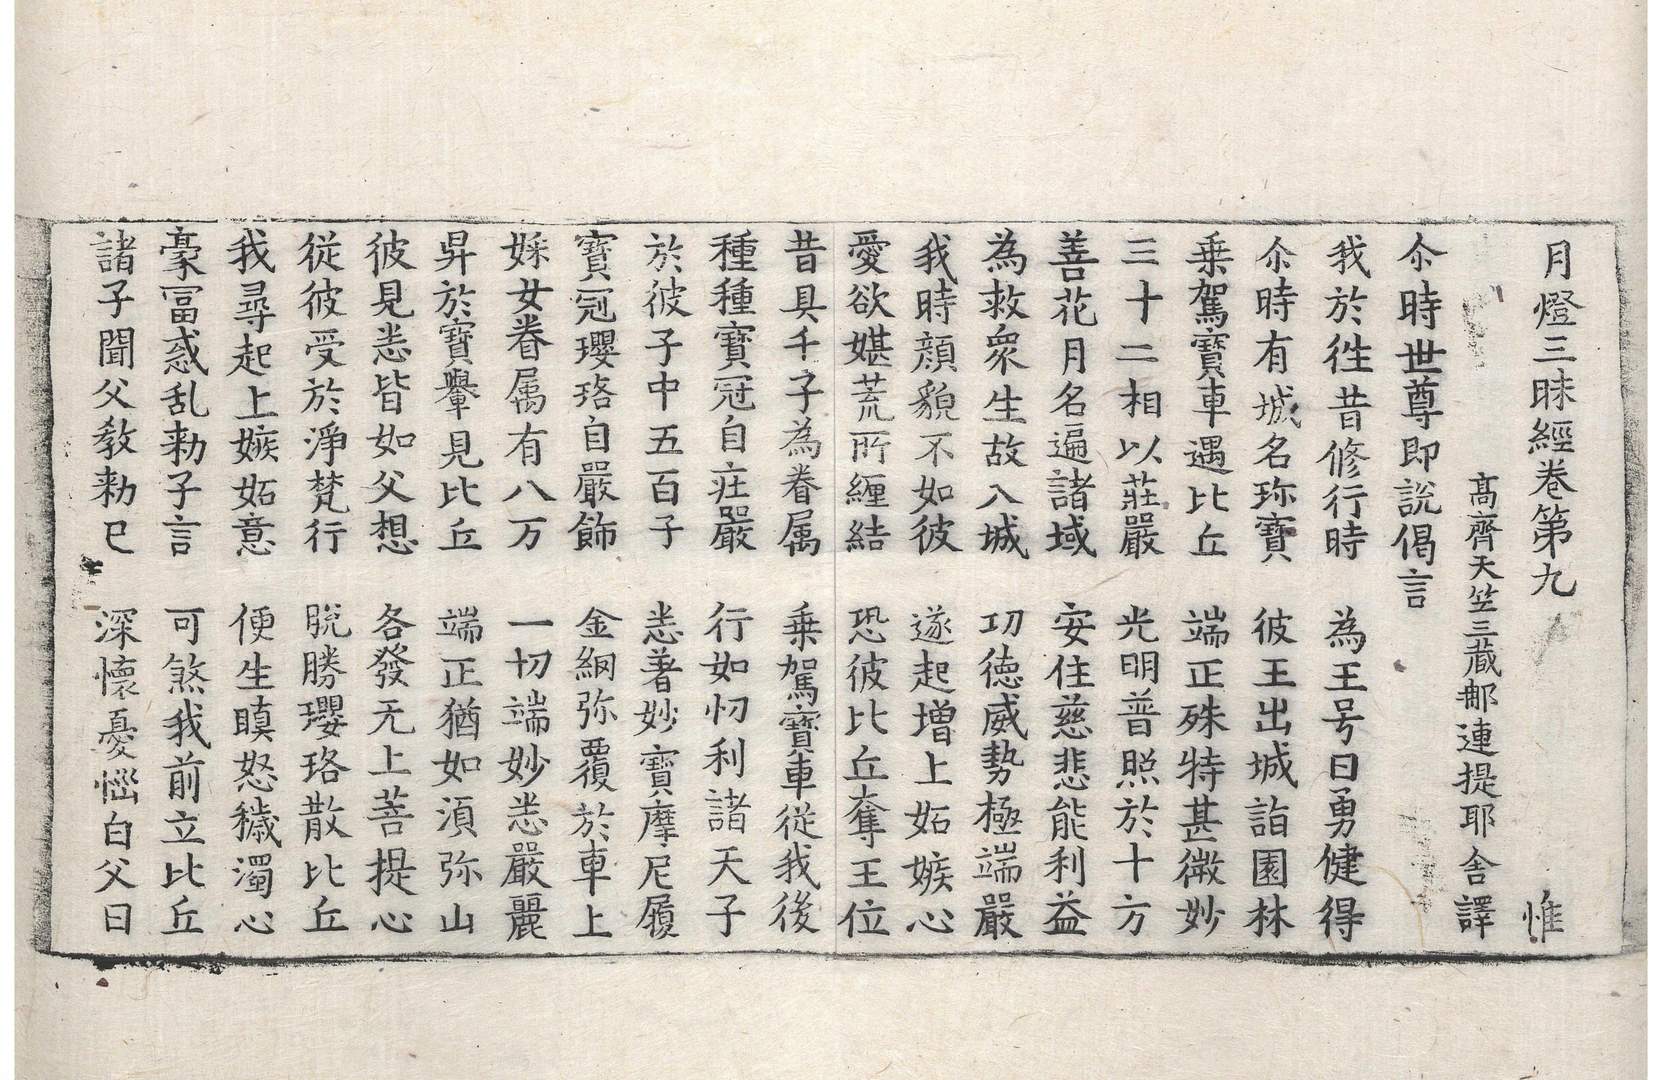 月燈三昧經卷第九　惟
高齊天竺三藏那連提耶舍譯
尒時世尊即說偈言
我於徃昔修行時　為王号曰勇健得
尒時有城名珎寶　彼王出城詣園林
乗駕寶車遇比丘　端正殊特甚微妙
三十二相以莊嚴　光明普照於十方
善花月名遍諸域　安住慈悲能利益
為救衆生故入城　功徳威勢極端嚴
我時顔貌不如彼　遂起增上妬嫉心
愛欲媅荒所纏結　恐彼比丘奪王位
昔具千子為眷属　乗駕寶車従我後
種種寶冠自莊嚴　行如忉利諸天子
於彼子中五百子　悉著妙寶摩尼履
寶冠瓔珞自嚴飾　金網弥覆於車上
婇女眷属有八万　一切端妙悉嚴麗
昇於寶轝見比丘　端正猶如湏弥山
彼見悉皆如父想　各發无上菩提心
従彼受於淨梵行　脫勝瓔珞散比丘
我尋起上嫉妬意　便生瞋怒穢濁心
豪冨惑乱勅子言　可煞我前立比丘
諸子聞父教勅已　深懷憂惱白父曰